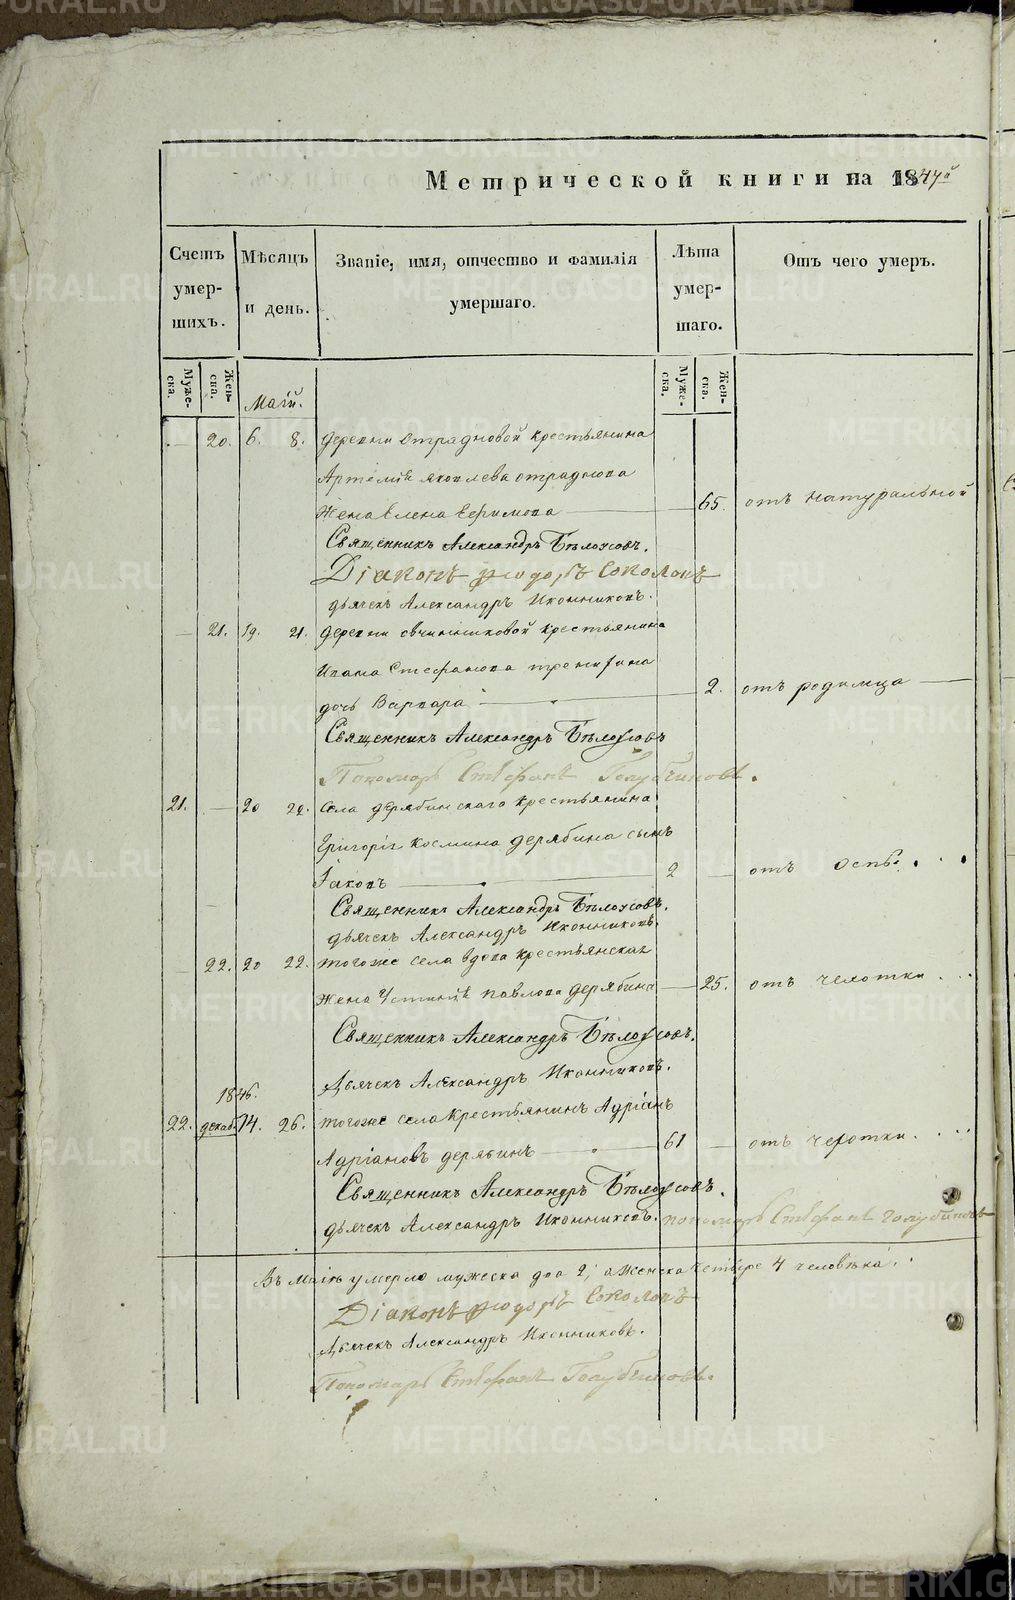 Метрической книги на 1847й
Счетъ умер-шихъ.
Мѣсяцъ и день.
Званіе, имя, отчество и фамилія умершаго.
Лѣта умер-шаго.
Отъ чего умеръ.
Муже-ска.
Жен-ска.
Муже-ска.
Жен-ска.
Маій.
20. 6. 8. деревни отрадновой крестьянина
Артемія яковлева отраднова
жена Елена Ефимова 65. отъ натуральной
Священникъ Александръ Бѣлоусовъ.
Діаконъ Ѳіодоръ Соколовъ
дьячекъ Александръ Иконниковъ.
21. 19. 21. деревни овчинниковой крестьянина
Ивана Стефанова
дочь Варвара 2. отъ родимца
Священникъ Александръ Бѣлоусовъ
Пономарь Стефанъ Голубчиковъ.
21. 20 22. села дерябинскаго крестьянина
Григорія Космина дерябина сынъ
Іаковъ 2 отъ оспы
Священникъ Александръ Бѣлоусовъ.
дьячекъ Александръ Иконниковъ.
22. 20 22. тогоже села вдова крестьянская
жена Устинія павлова дерябина 25. отъ чехотки
Священникъ Александръ Бѣлоусовъ.
Дьячекъ Александръ Иконниковъ.
1846.
22. декаб. 14. 26. тогоже села крестьянинъ Адріанъ
Адріановъ дерябинъ 61 отъ чехотки
Священникъ Александръ Бѣлоусовъ.
дьячекъ Александръ Иконниковъ. пономарь Стефанъ Голубчиковъ
Въ маіѣ умерло мужеска два 2, а женска четыре 4 человѣка
Діаконъ Ѳіодоръ Соколовъ
Дьячекъ Александръ Иконниковъ.
Пономарь Стефанъ Голубчиковъ.
METRIKI.GASO-URAL.RU